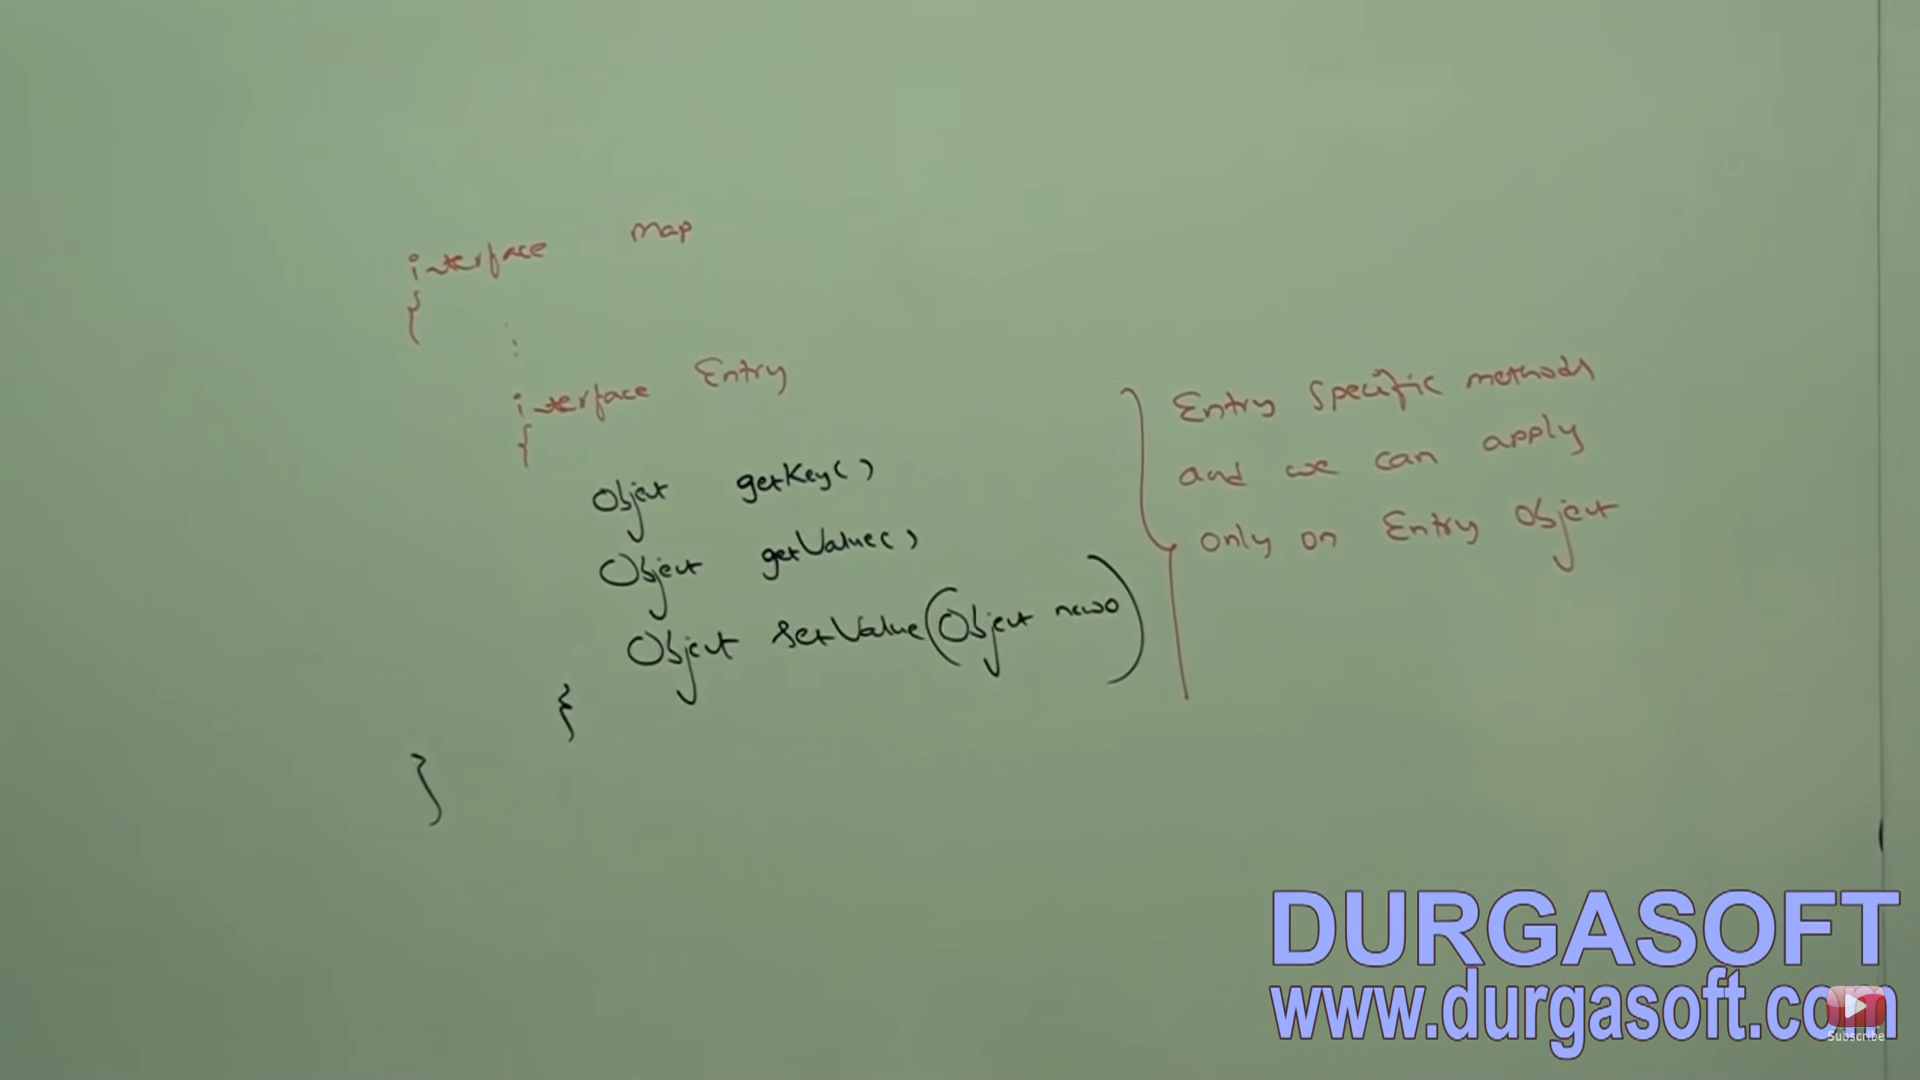 interface Map
{
:
interface Entry
{
Object getKey()
Object getValue()
Object setValue(Object newo)
}
}
Entry Specific methods
and we can apply
only on Entry Object
DURGASOFT
www.durgasoft.com
Subscribe